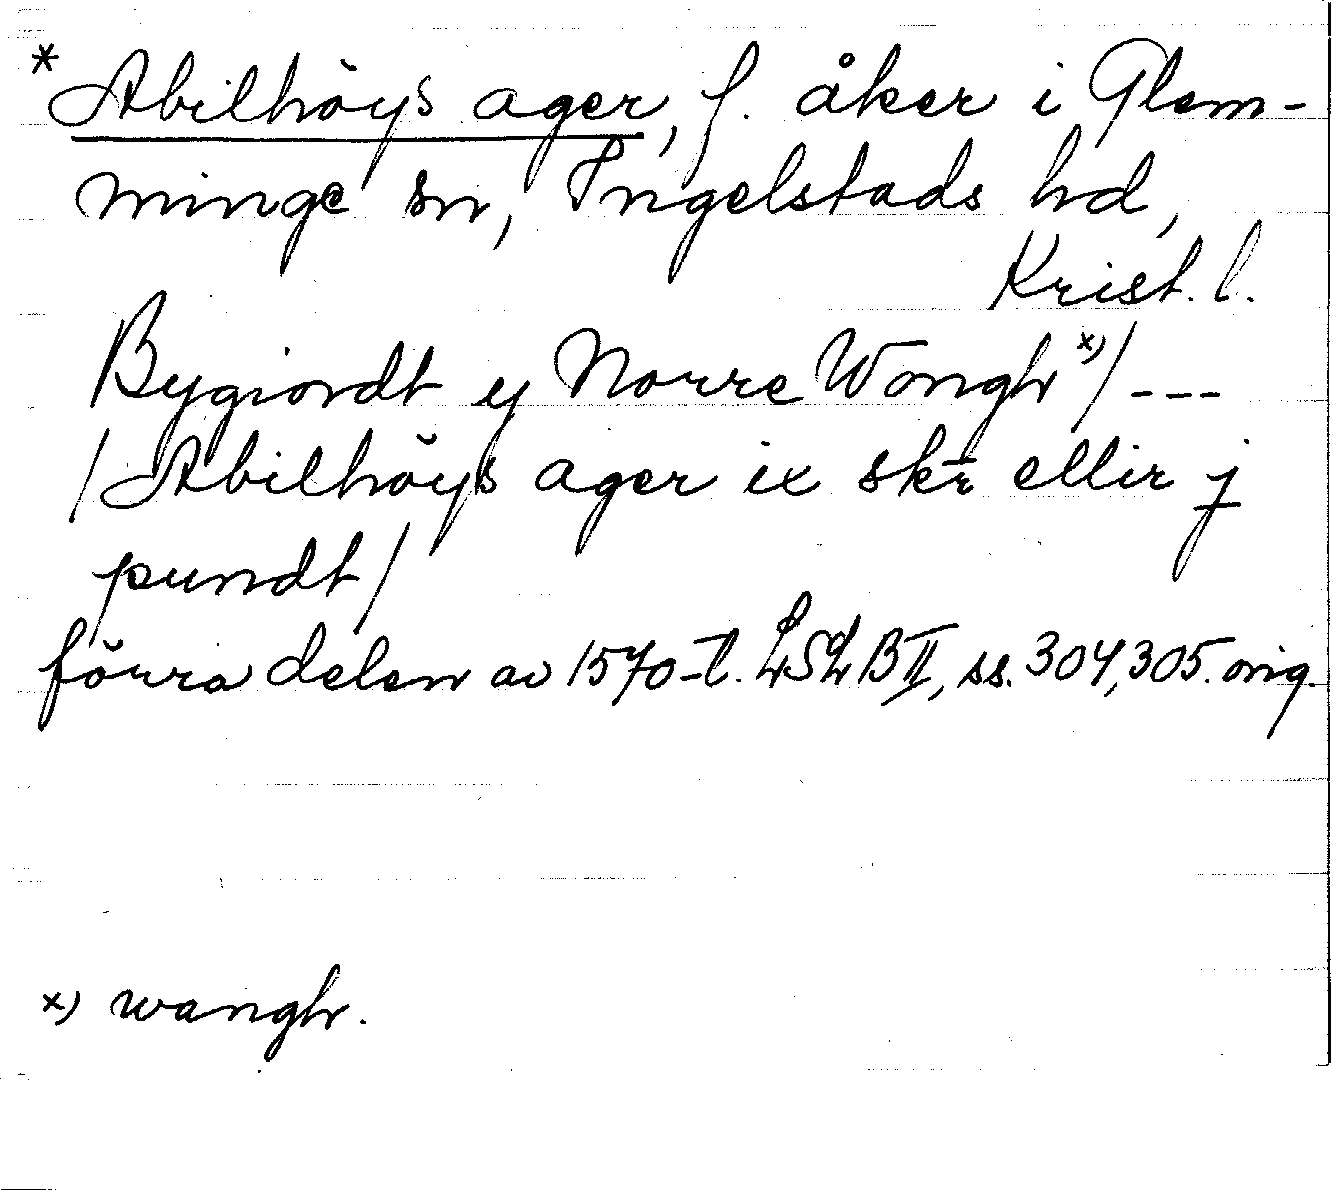 * Abilhöys ager, f. åker i Glem-
minge sn, Ingelstads hd,
Krist. l.
Bygiordt y Norre Wongh x)/ ---
/Abilhöys ager ix skr̄ ellir j
pundt/
förra delen av 1570-t. LSLB II, ss. 304, 305. orig.
x) wangh.